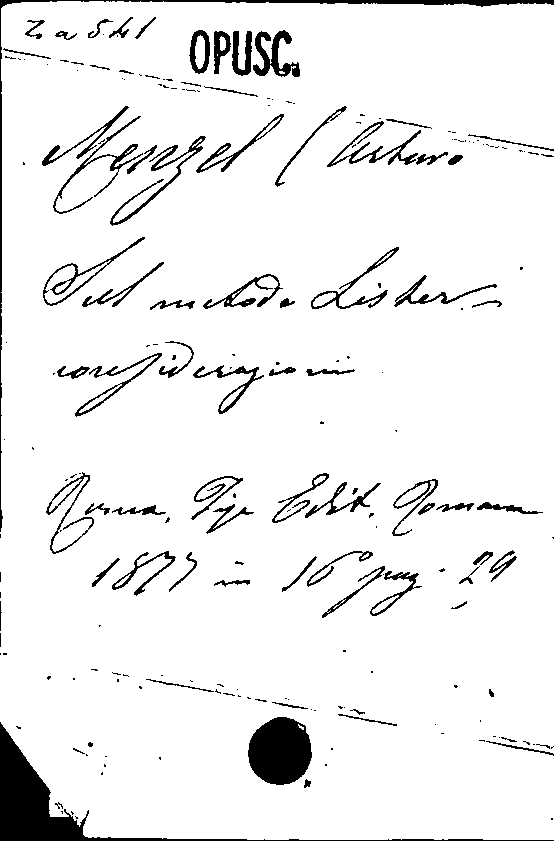 Z a 541
OPUSC.
Menzel (Arturo
Sul metodo Lister –
considerazioni
Roma, Tip. Edit. Romana
1877 in 16° pag. 29